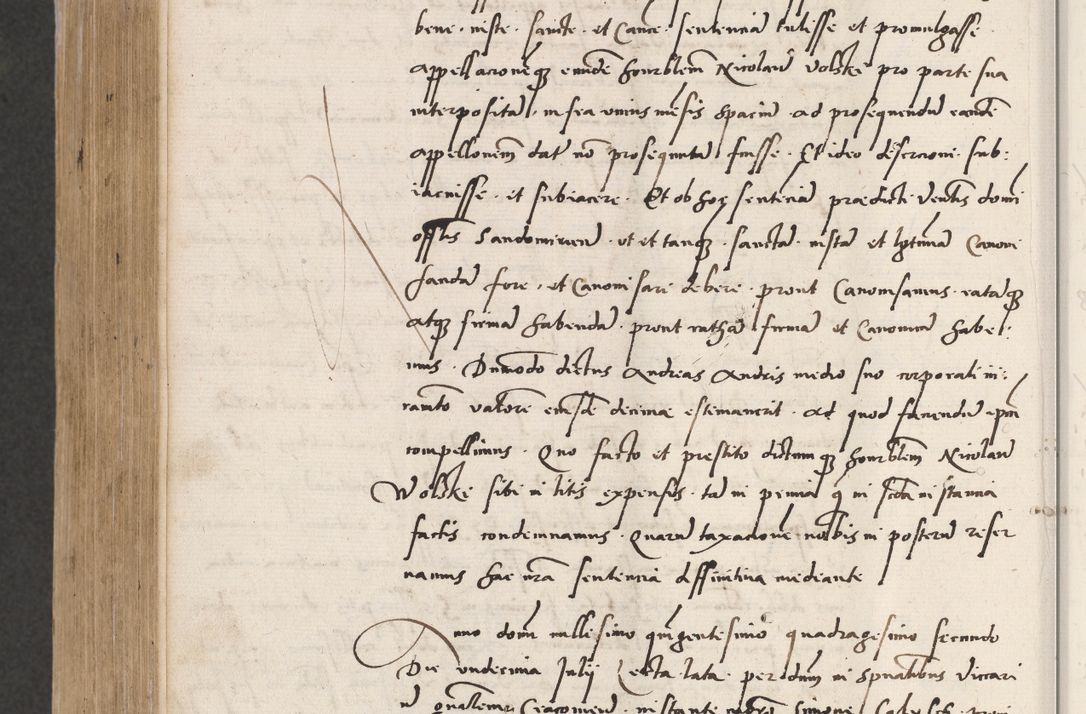 bene iuste sancte et Cano͞e sentencia͞ tulisse et promulgasse
appellacionemq͞ eiusde͞ honrblem Nicolaum Volski pro parte sua
interposita͞ infra unius me͞sis spaciu͞ ad prosequendu͞ eande͞
appello͞nem dat͞ no͞ prosequuta͞ fuisse Et ideo desercioni sub:
iacuisse et subiacere Et ob hoc sentencia͞ praedicti Vene͞lis domi͞
offi͞lis Sandomirien͞ ut et tanq͞ sancta͞ iusta͞ et l͞gtima͞ Canoni
sanda͞ fore et Canonisari debere prout Canonisamus rata͞q͞
atq͞ firma͞ habenda͞ prout ratha͞ firma͞ et Canonica͞ habe:
mus Du͞modo dictus Andreas Andris medio suo corporali iu:
ramto valore͞ eiusde͞ decimae estimaverit Ad quod faciendu͞ ip͞m
compellimus Quo facto et prestito dictumq͞ honrblem Nicolaum
Wolski sibi in litis expensis ta͞ in prima q͞ in sc͞da instancia
factis condemnamus Quaru͞ taxacione͞ nobis in posteru͞ reser
uamus hac nr͞a sentencia diffinitiua mediante
Anno domi͞ millesimo qui͞ngentesimo quadragesimo secundo
Die undecima Julij Lecta lata per d͞num in sp͞ualibus vicari
u͞ g͞nalem Cracovien͞ instante